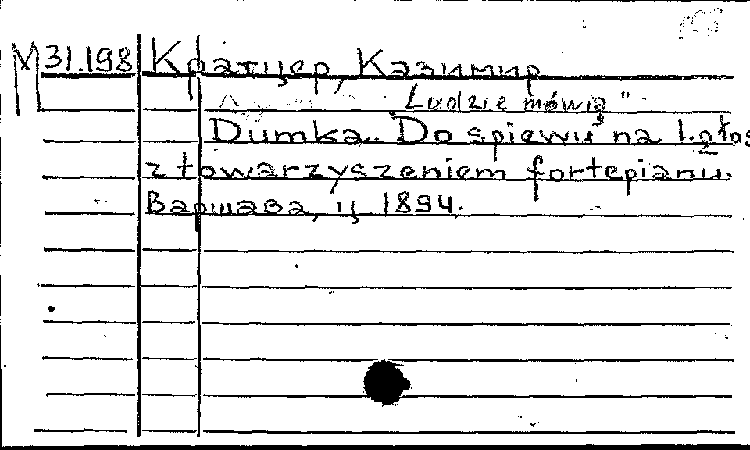 М 31.198 Кратцер, Казимир
Ludzie mówią"
Dumka. Do śpiewu na 1. głos
z towarzyszeniem fortepianu.
Варшава, ц 1894.